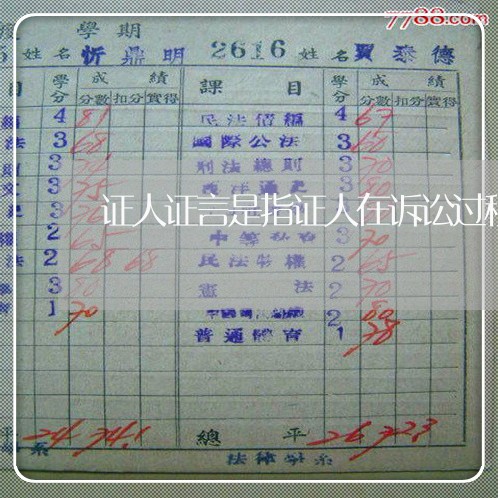 7788.com
學期
姓名 忻鼎明 2616 姓名 賈泰德
目 學分 成績 課目 學分 成績
分數 扣分 實得 分數 扣分 實得
4 81 民法債編 4 67
法 3 68 國際公法 3 60
3 刑法總則 3 70
3 75 西洋通史 3
证人证言是指证人在诉讼过程
2 65 3 70
法 2 68 68 民法物權 2 65
3 80 憲法 2 70
1 70 2 80
普通體育 1 78
平 24 74.1 總平 26 72.3
系 法律學系